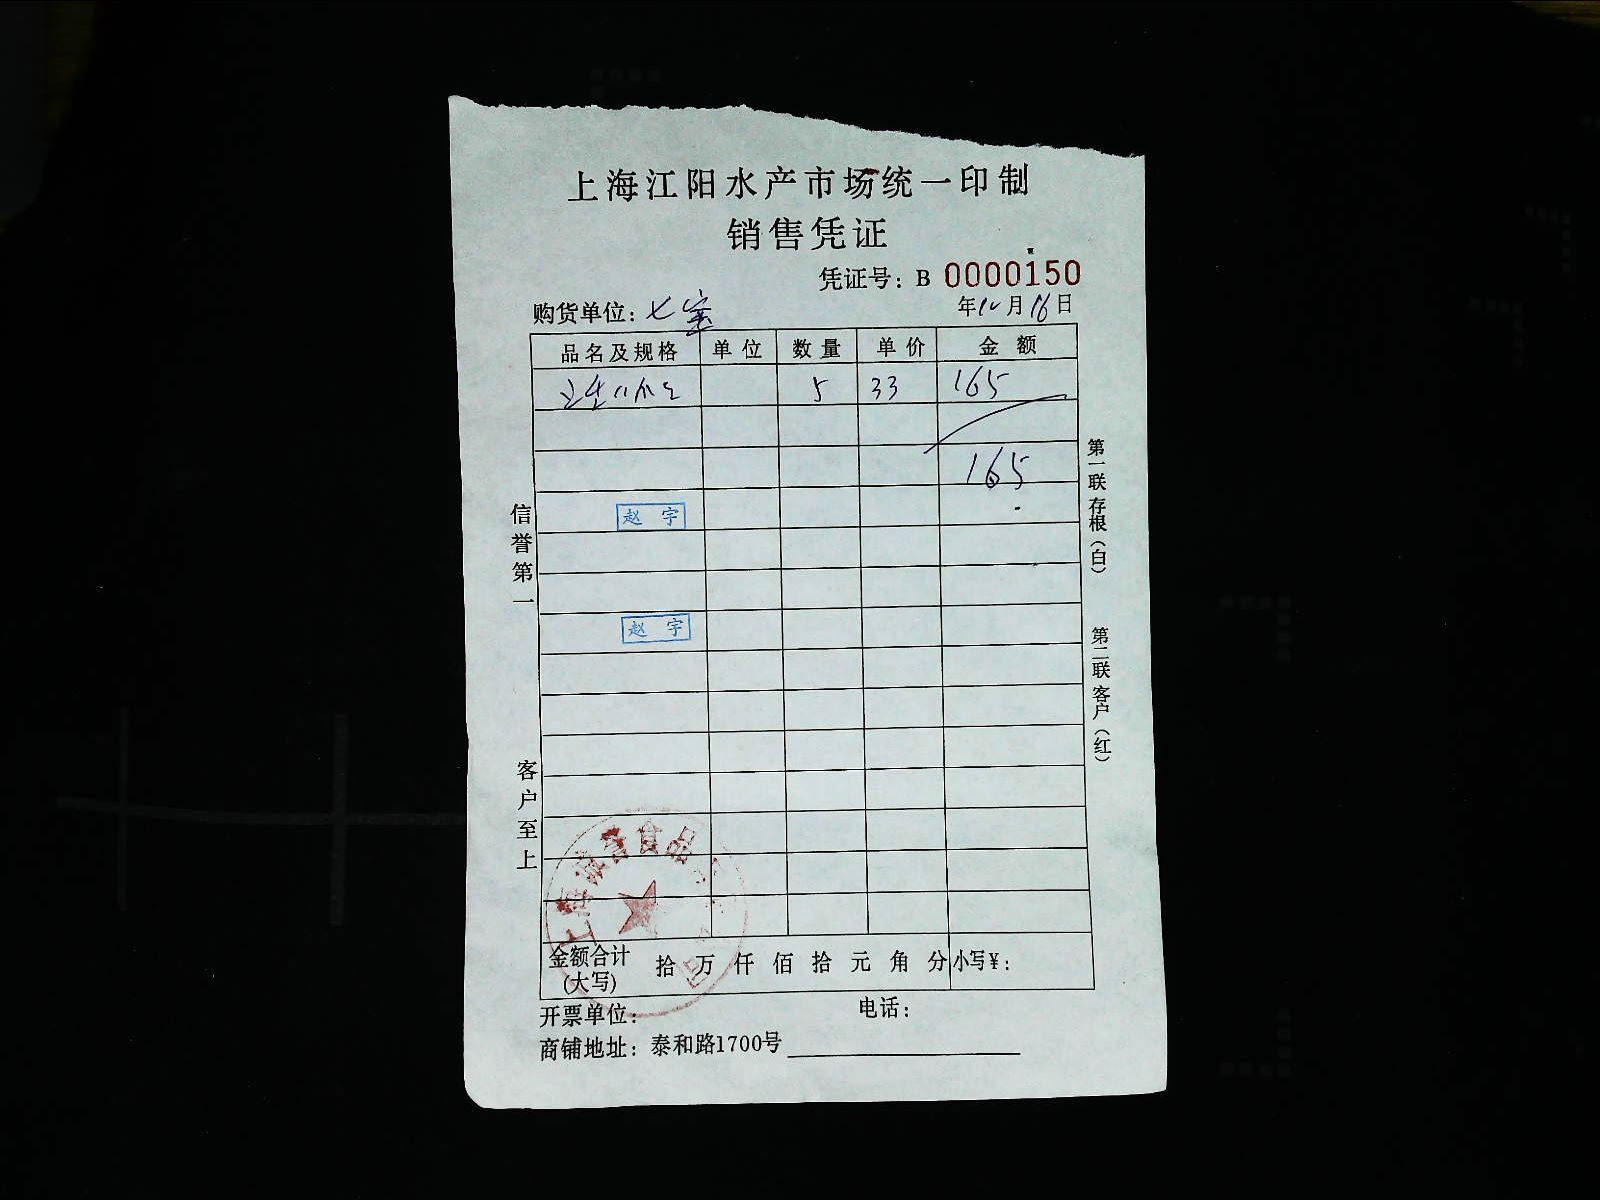 上海江阳水产市场统一印制
销售凭证
凭证号：B 0000150
购货单位：七宝 年12月16日
品名及规格 单位 数量 单价 金额
5 33 165
165
赵宇
赵宇
信誉第一
客户至上
第一联存根（白）
第二联客户（红）
上海 食品
金额合计（大写） 拾 万 仟 佰 拾 元 角 分 小写¥：
开票单位： 电话：
商铺地址：泰和路1700号